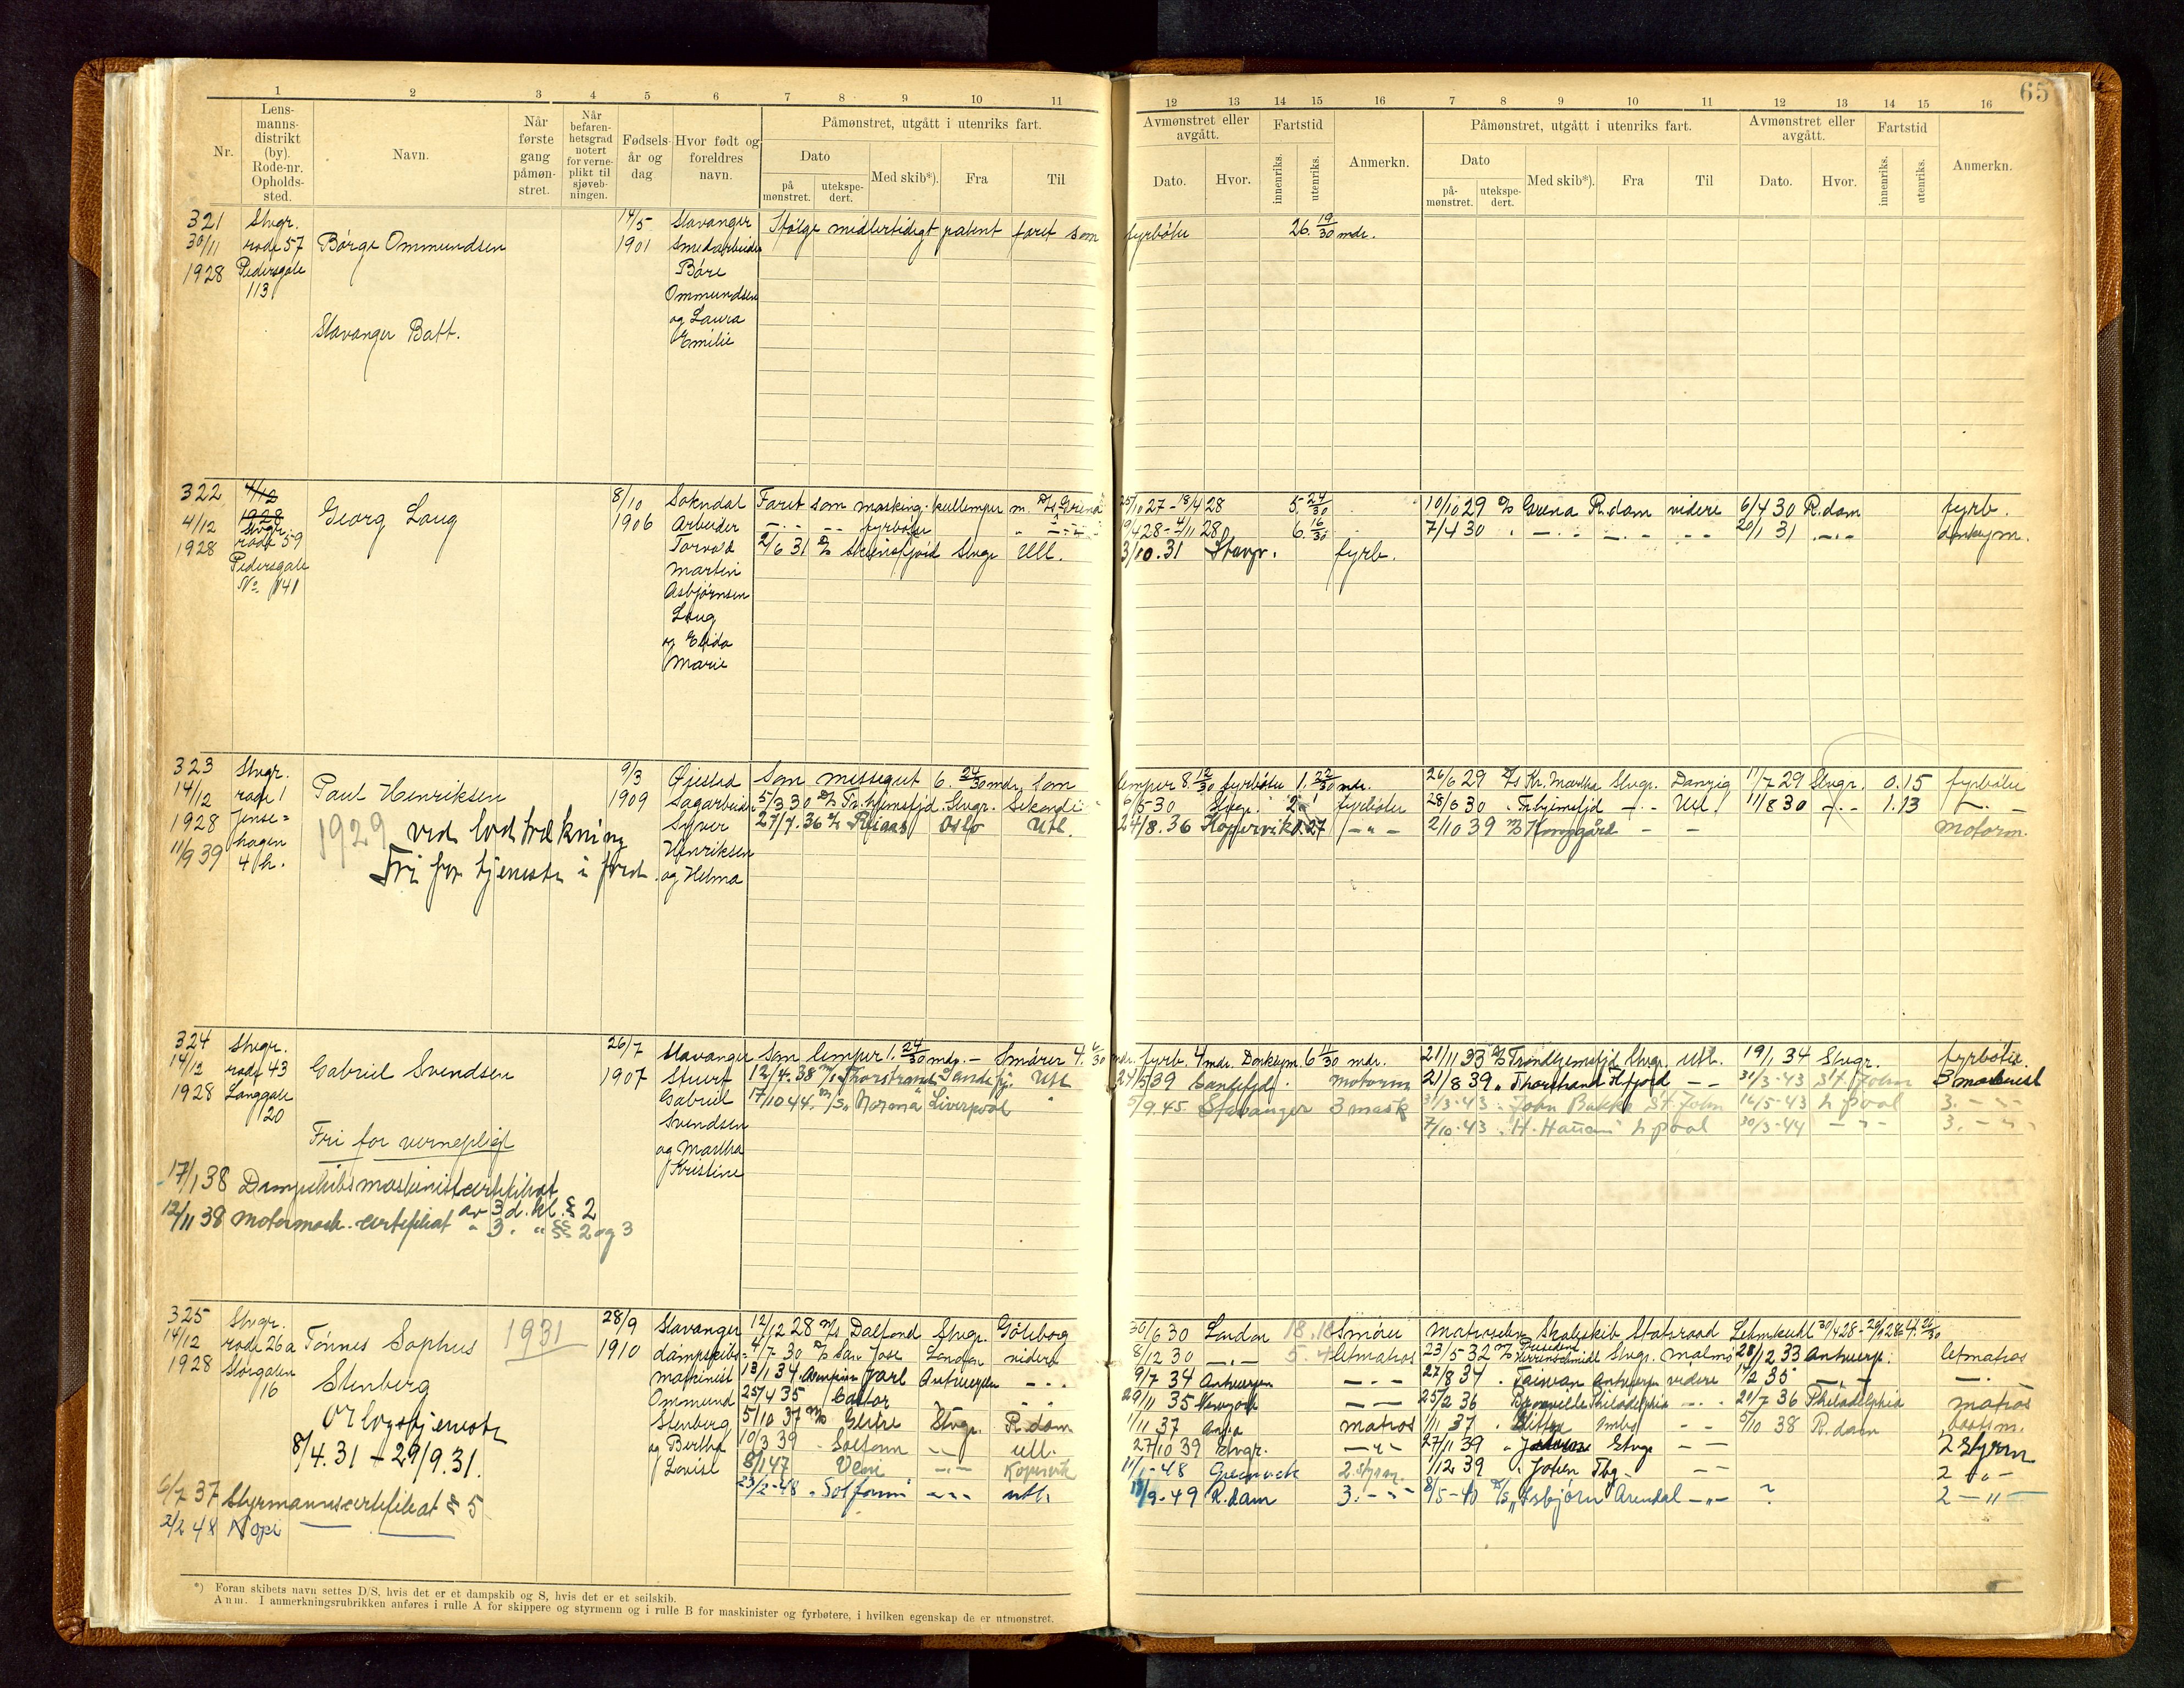 65
1 2 3 4 5 6 7 8 9 10 11 12 13 14 15 16 7 8 9 10 11 12 13 14 15 16
Nr.
Lens-
manns-
distrikt
(by).
Rode-nr.
Opholds-
sted.
Navn.
Når
første
gang
påmøn-
stret.
Når
befaren-
hetsgrad
notert
for verne-
plikt til
sjøveb-
ningen.
Fødsels-
år og
dag
Hvor født og
foreldres
navn.
Påmønstret, utgått i utenriks fart.
Dato
på
mønstret.
utekspe-
dert.
Med skib*).
Fra
Til
Avmønstret eller
avgått.
Dato.
Hvor.
Fartstid
innenriks.
utenriks.
Anmerkn.
Påmønstret, utgått i utenriks fart.
Dato
på-
mønstret.
utekspe-
dert.
Med skib*).
Fra
Til
Avmønstret eller
avgått.
Dato.
Hvor.
Fartstid
innenriks.
utenriks.
Anmerkn.
321
30/11
1928
Stvgr.
rode 57
Pedersgate
113
Børge Ommundsen
Stavanger Batt.
14/5
1901
Stavanger
Smedarbeider
Båre
Ommundsen
og Laura
Emilie
Ifølge midlertidigt patent faret som fyrbøter 26. 19/30 mdr.
322
4/12
1928
4/12
1928
Stvgr.
rode 59
Pedersgate
No. 141
Georg Laug
8/10
1906
Sokndal
Arbeider
Torvald
Martin
Asbjørnsen
Laug
og Elida
Marie
Faret som masking. kullemper m. D/s Grena 25/10 27 - 18/4 28 5. 24/30
fyrbøter 19/4 28 - 4/11 28 6. 16/30
2/6 31 D/s Skiensfjord Stvgr Utl. 3/10.31 Stavgr. fyrb.
10/10 29 D/s Grena R.dam videre 6/4 30 R.dam fyrb.
7/4 30 20/1 31 donkeym.
323
14/12
1928
11/9 39
Stvgr.
rode 1
Jense=
hagen
4 h.
Paul Henriksen
1929 ved lodtrækning
Fri for tjeneste i fred.
9/3
1909
Øjestad
Sagarbeider
Syver
Henriksen
og Helma
Som messegut 6. 24/30 mdr. Som lemper 8 12/30 fyrbøter 1. 22/30 mdr.
5/3 30 D/s Tr.hjemsfjd. Stvgr. 6/5-30 Stvgr. fyrbøter
27/7.36 Oslo Utl. 24/8.36 Kopervik 0.27
26/6 29 D/s Kr. Martha Stvgr. Danzig 17/7 29 Stvgr. 0.15 fyrbøter
28/6 30 Trhjemsfjd Utl. 11/8 30 1.13
2/10 39 Kongsgård motorm.
324
14/12
1928
Stvgr.
rode 43
Langgate
20
Gabriel Svendsen
Fri for vernepligt
17/1 38 Dampskibsmaskinistcertifikat
av 3d. kl. § 2
12/11 38 Motormask. certifikat " 3. " §§ 2 og 3
26/7
1907
Stavanger
Stuert
Gabriel
Svendsen
og Martha
Kristine
Som lemper 1. 24/30 mdr. - Smører 4. 6/30 mdr. fyrb. 4 mdr. Donkeym. 6 11/30 mdr.
12/4.38 M/s Thorstrand Sandefj. Utl 24/5 39 Sandefjd. motorm
17/10 44. M/s "Norma" Liverpool 5/9.45 Stavanger 3 mask
21/11 33 D/s Trondhjemsfjd Stvgr. Utl. 19/1 34 Stvgr. fyrbøter
21/8 39 " Thorstrand 31/3-43 St. John 3 maskinist
31/3-43 " John Bakke St. John 16/5-43 L pool 3.
7/10-43 L pool 30/3-44 3.
325
14/12
1928
Stvgr.
rode 26a
Storgaten
16
Tønnes Sophus
Stenberg
1931
Orlogstjeneste
8/4.31 - 29/9.31.
6/7 37 Styrmannscertifikat § 5
2/2 48 Kopi
28/9
1910
Stavanger
dampskibs=
maskinist
Ommund
Stenberg
og Bertha
Lovise
12/12 28 M/s Dalfonn Stvgr. Göteborg 30/6 30 London 18.18 Smører
4/7-30 D/s San Jose London videre 8/12 30 5.4 letmatros
13/1 34 Jarl Antwerpen 9/7 34 Antwerpen
25/4 35 Castor 29/11 35 Newyork
5/10 37 Stvgr. R.dam 1/11 37 matros
10/3 39 Solfonn utl. 27/10 39 Stvgr.
8/1 47 Veni Kopervik 11/1-48 Greenock 2. styrm.
23/2-48 " Solfonn utl. 18/9-49 R.dam 3.
Matroselev Skoleskib Statsraad Lehmkuhl 30/4 28 - 20/9 28
23/5 32 President Herrenschmidt Stvgr. Malmö 28/12 33 Antwerp. letmatros
27/8 34 Taiwan Antwerp. videre 14/2 35
25/2 36 Bonneville Philadelphia 21/7 36 Philadelphia matros
1/11 37 5/10 38 R.dam baatsm.
27/11 39 Stvgr 2 styrm
1/12 39 " Jotien Tbg. 2
8/5-40 D/s "Isbjørn Arendal ? 2
*) Foran skibets navn settes D/S, hvis det er et dampskib og S, hvis det er et seilskib.
Anm. I anmerkningsrubrikken anføres i rulle A for skippere og styrmenn og i rulle B for maskinister og fyrbøtere, i hvilken egenskap de er utmønstret.